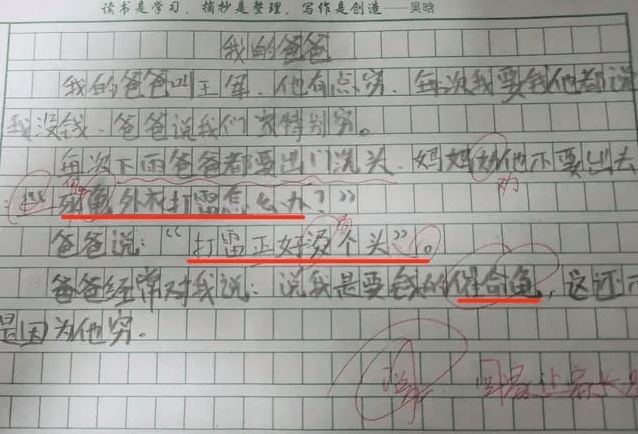 读书是学习，摘抄是整理，写作是创造——吴晗
我的爸爸
我的爸爸叫王军、他有点穷、每次我要钱他都说
我没钱、爸爸说我们家特别穷。
每次下雨爸爸都要出门洗头、妈妈劝他不要出去
外在打雷怎么办？”
爸爸说：“打雷正好烫个头”。
爸爸经常对我说：说我是要钱的催命鬼，这还不
是因为他穷．
回家让家长